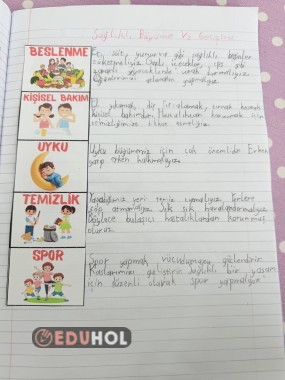 Sağlıklı Büyüme Ve Gelişme
BESLENME
Et, süt, yumurta gibi sağlıklı besinler
tüketmeliyiz.
zararlı yiyeceklerden uzak durmalıyız.
KİŞİSEL BAKIM
El yıkamak, diş fırçalamak, tırnak kesmek
kişisel bakımdır. Hastalıktan korunmak için
temizliğimize dikkat etmeliyiz.
UYKU
Uyku büyümemiz için çok önemlidir. Erken
yatıp erken kalkmalıyız.
TEMİZLİK
Yaşadığımız yeri temiz tutmalıyız. Yerlere
çöp atmamalıyız. Sık sık havalandırmalıyız.
Böylece bulaşıcı hastalıklardan korunmuş
oluruz.
SPOR
Spor yapmak vücudumuzu güçlendirir.
Kaslarımızı geliştirir. Sağlıklı bir yaşam
için düzenli olarak spor yapmalıyız.
EDUHOL